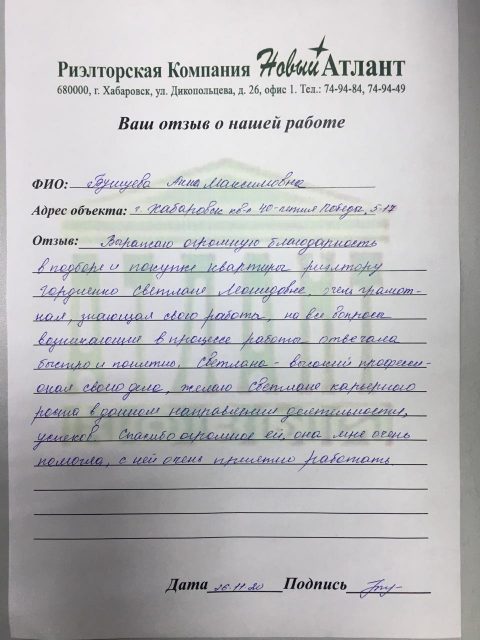 Риэлторская Компания Новый Атлант
680000, г. Хабаровск, ул. Дикопольцева, д. 26, офис 1. Тел.: 74-94-84, 74-94-49
Ваш отзыв о нашей работе
ФИО: Анна Максимовна
Адрес объекта: г. Хабаровск кв-л 40-летия Победа, 5-17
Отзыв: Выражаю огромную благодарность
в подборе и покупке квартиры риэлтору
Гордиенко Светлане Леонидовне, очень грамот-
ная, знающая свою работы, на все вопросы
возникающие в процессе работы отвечала
быстро и понятно. Светлана - высокий професси-
онал своего дела, желаю Светлане карьерного
роста в данном направлении деятельности,
успехов. Спасибо огромное ей, она мне очень
помогла, с ней очень приятно работать.
Дата 26.11.20 Подпись